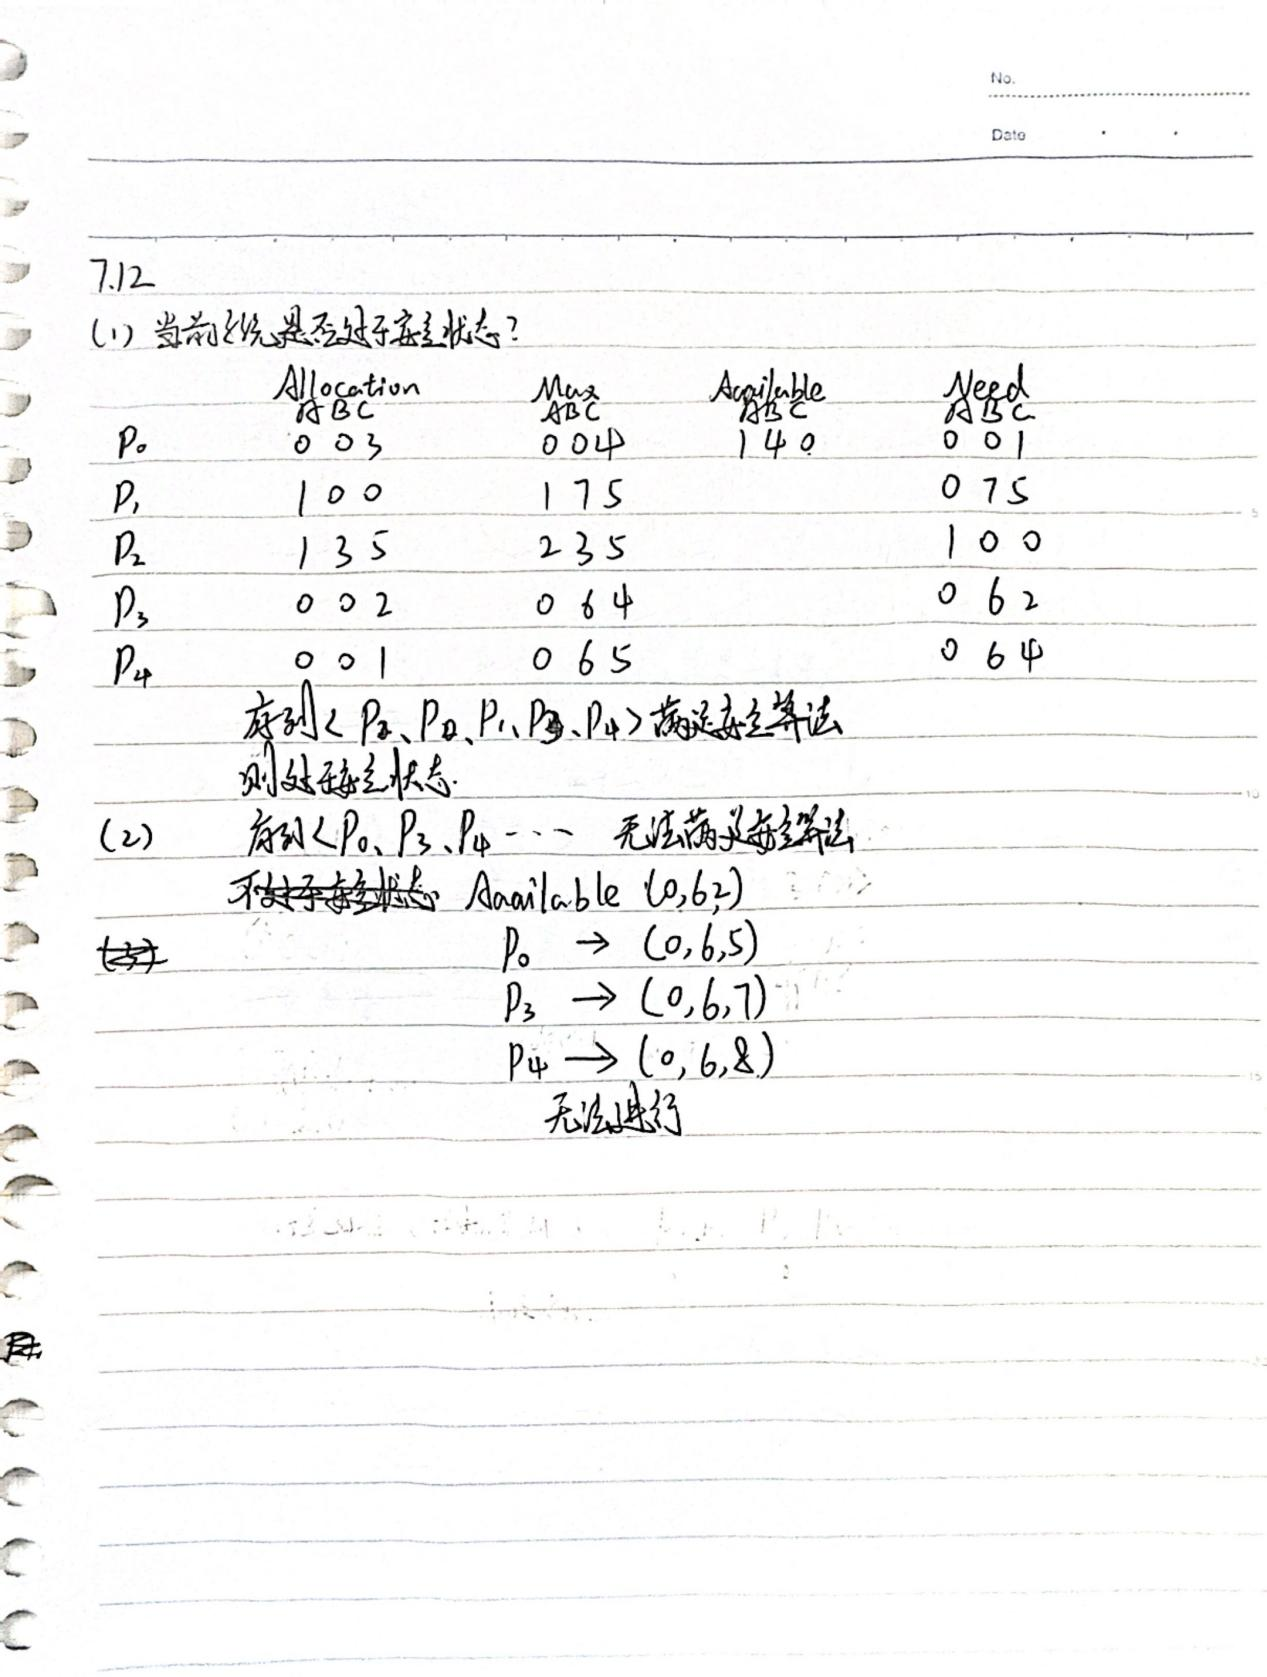 No.
Date
7.12
(1) 当前系统是否处于安全状态?
Allocation Max Available Need
A B C A B C A B C A B C
P0 0 0 3 0 0 4 1 4 0 0 0 1
P1 1 0 0 1 7 5 0 7 5
P2 1 3 5 2 3 5 1 0 0
P3 0 0 2 0 6 4 0 6 2
P4 0 0 1 0 6 5 0 6 4
序列< P2、P0、P1、P3、P4>满足安全算法
则处于安全状态.
(2) 序列<P0、P3、P4 --- 无法满足安全算法
不处于安全状态 Available (0,6,2)
(3) P0 → (0,6,5)
P3 → (0,6,7)
P4 → (0,6,8)
无法进行